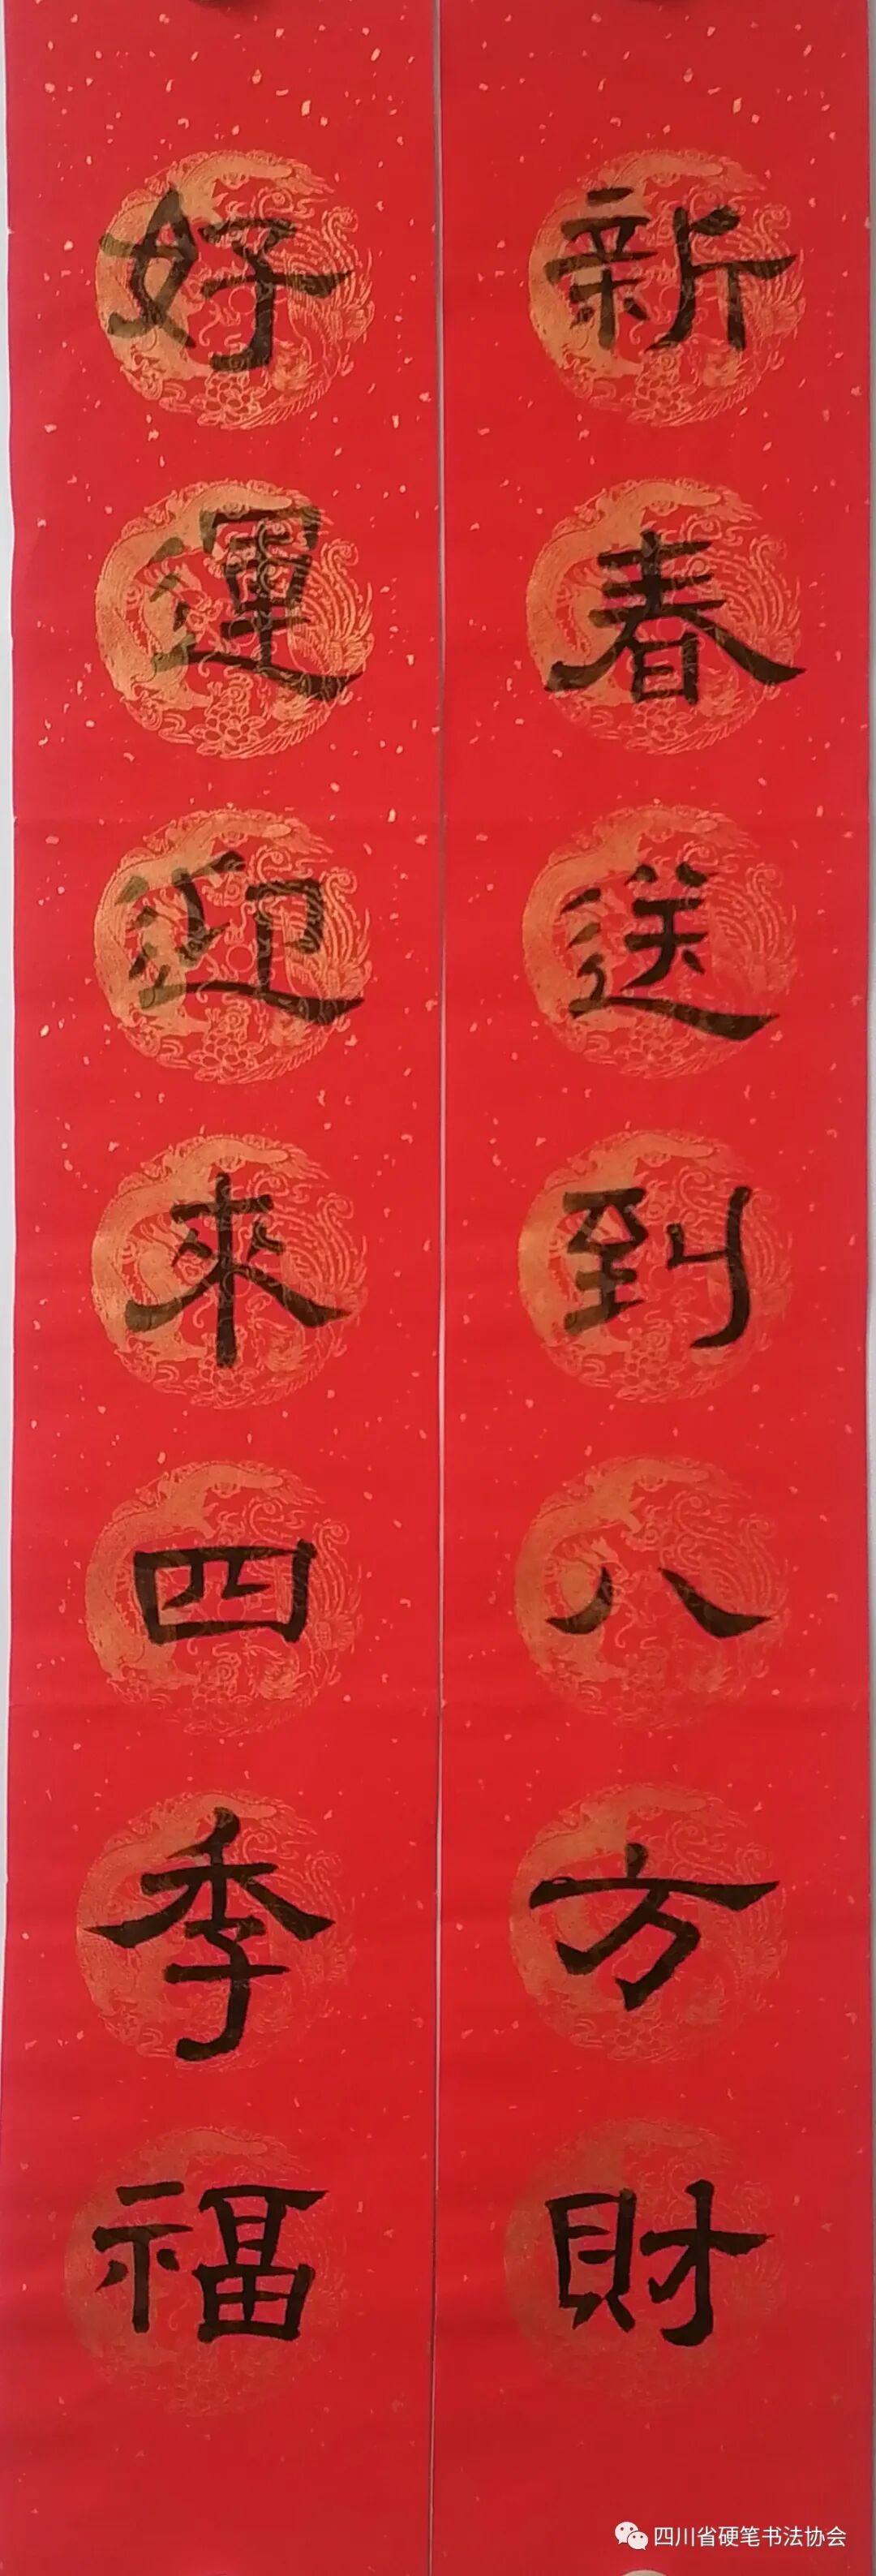 新春送到八方財
好運迎來四季福
四川省硬笔书法协会